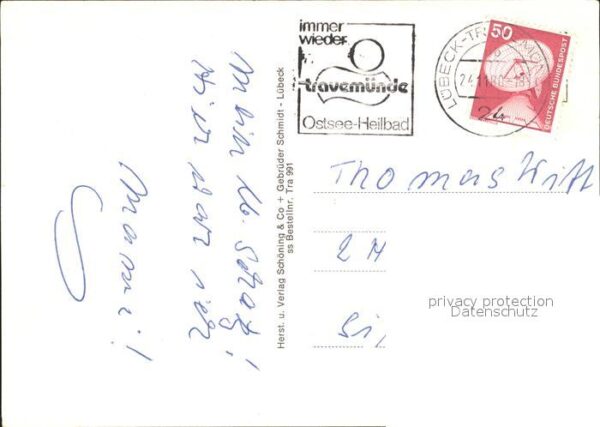 Mein lb. Schatz!
Hier war ich
Mami!
Herst. u. Verlag Schöning & Co + Gebrüder Schmidt - Lübeck
ss Bestellnr. Tra 991
immer
wieder
travemünde
Ostsee-Heilbad
LÜBECK-TRAVEMÜNDE
24.11.80
24
50
DEUTSCHE BUNDESPOST
Thomas Witt
2 H
Si
privacy protection
Datenschutz